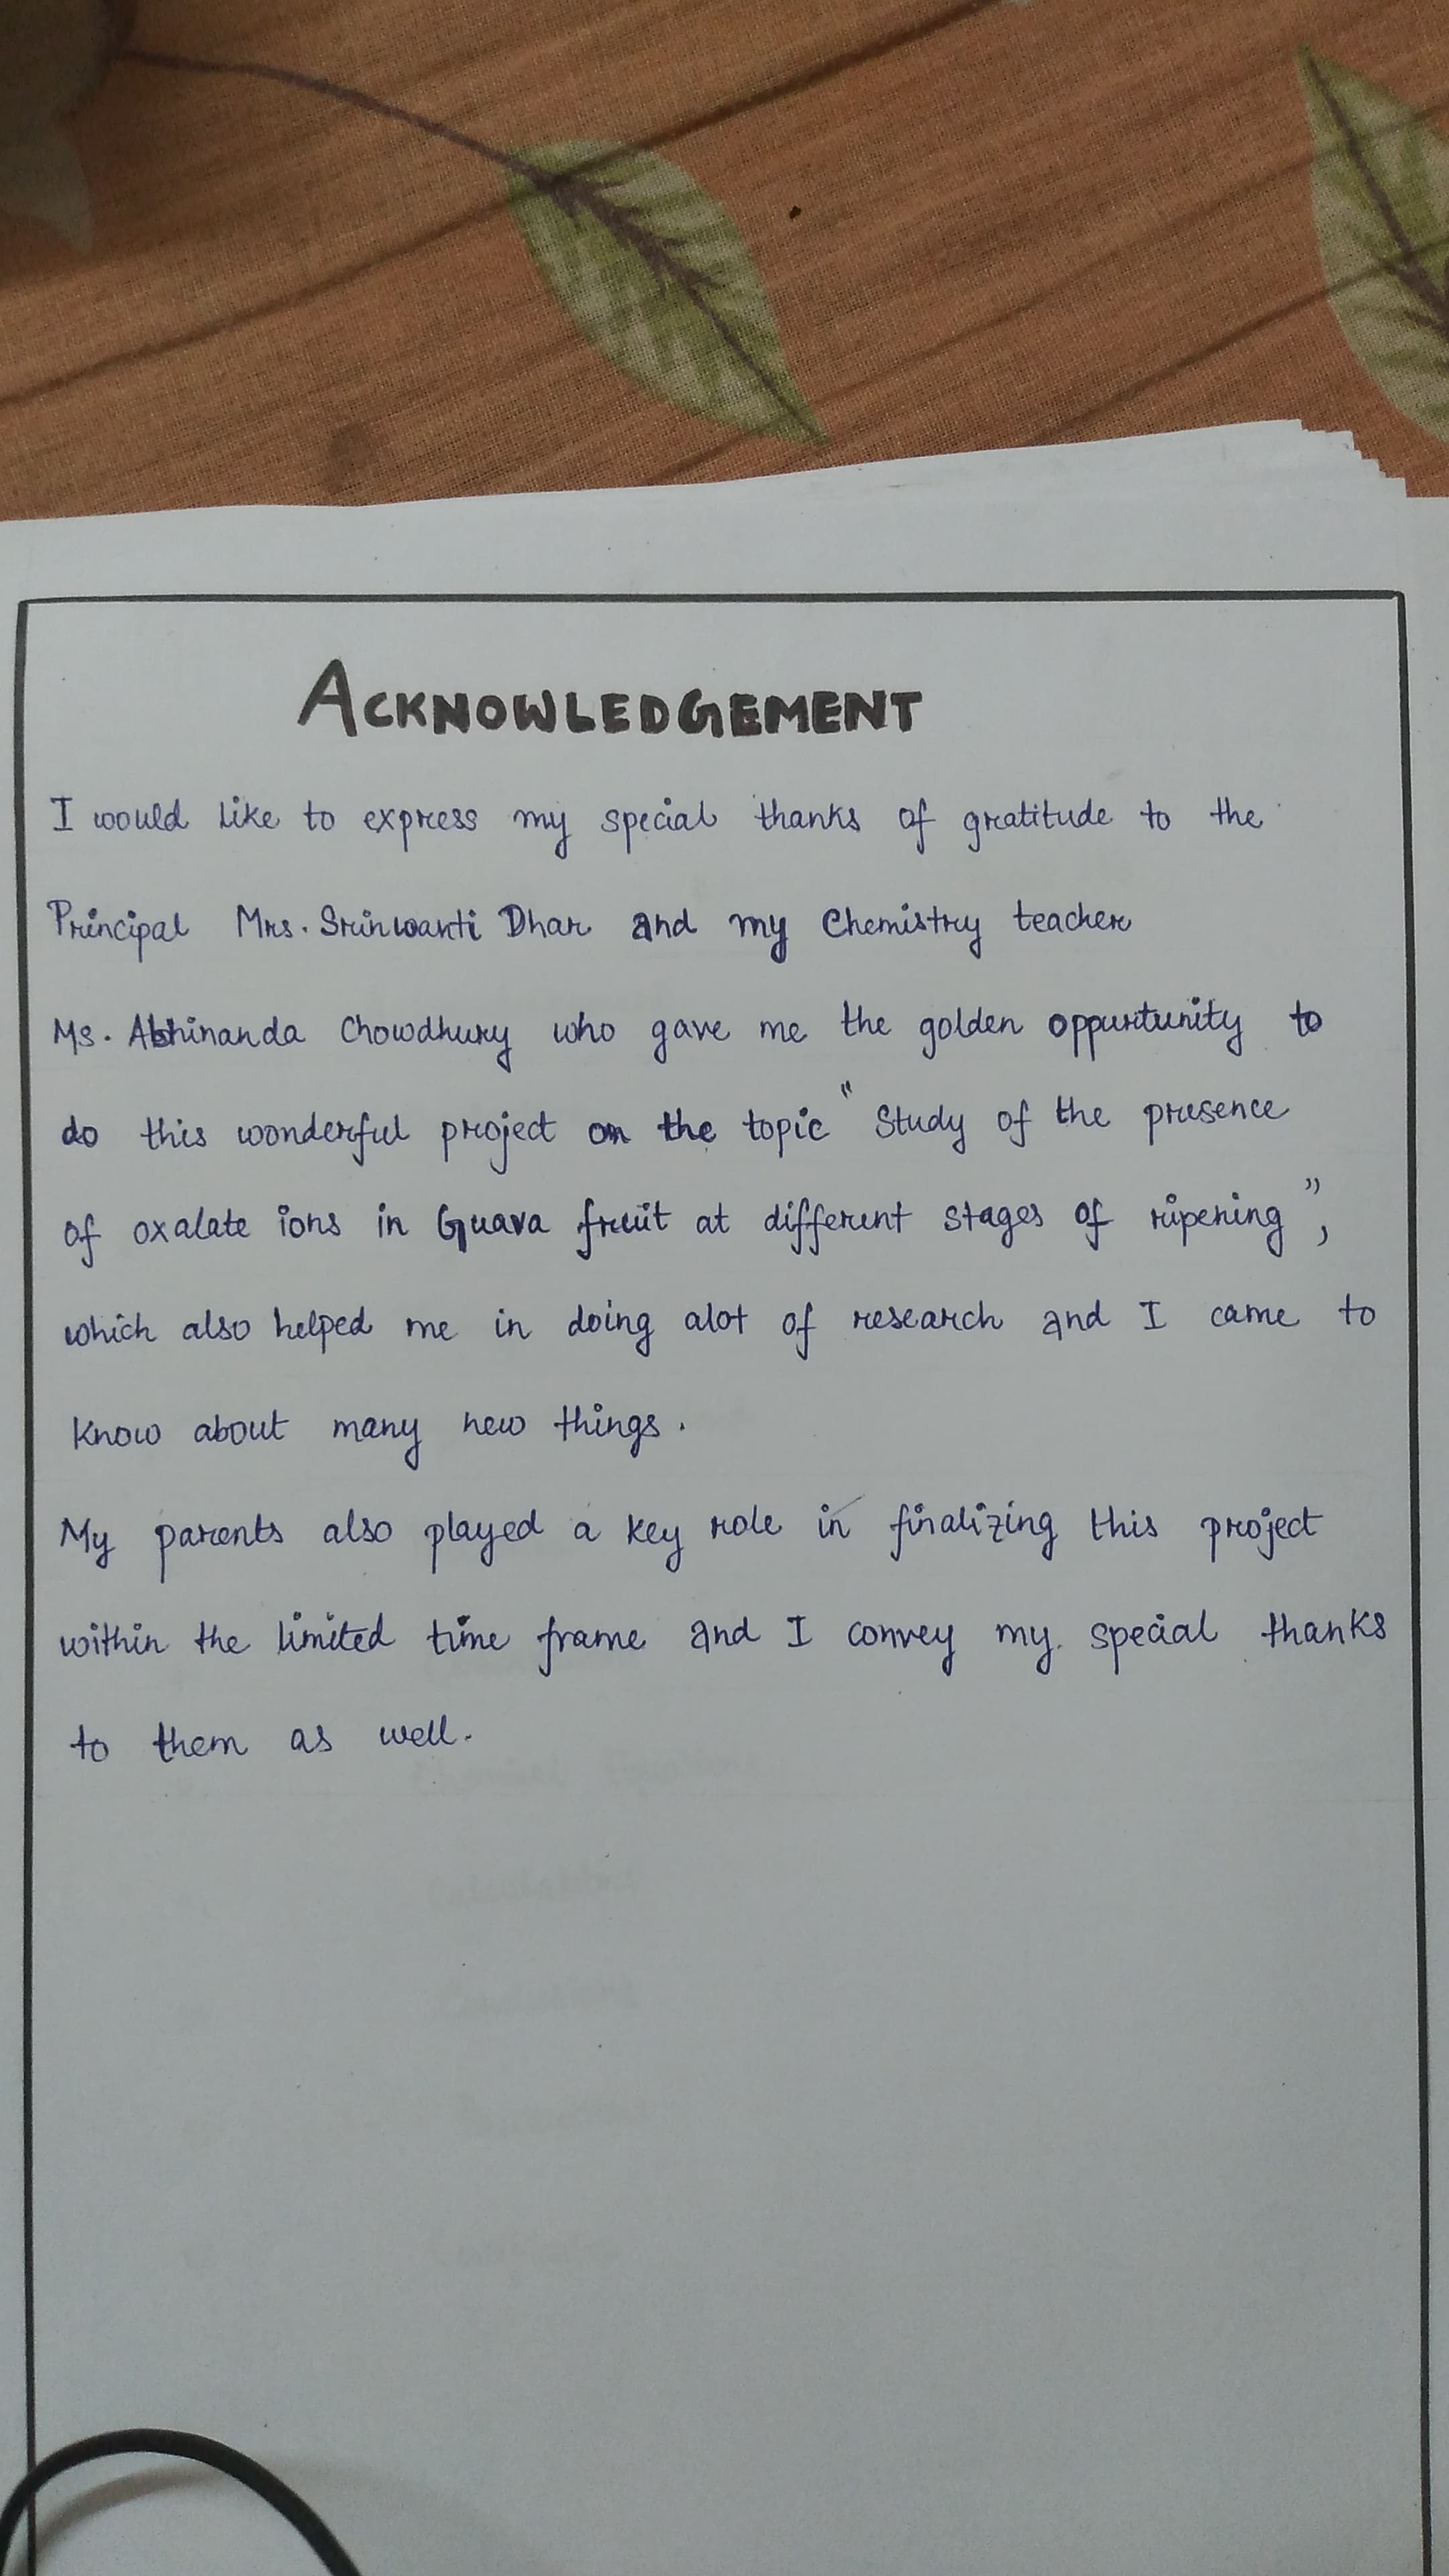 ACKNOWLEDGEMENT
I would like to express my special thanks of gratitude to the
Principal Mrs. Srinwanti Dhar and my Chemistry teacher
Ms. Abhinanda Chowdhury who gave me the golden oppurtunity to
do this wonderful project on the topic " Study of the presence
of oxalate ions in Guava fruit at different stages of ripening ",
which also helped me in doing alot of research and I came to
know about many new things.
My parents also played a key role in finalizing this project
within the limited time frame and I convey my special thanks
to them as well.